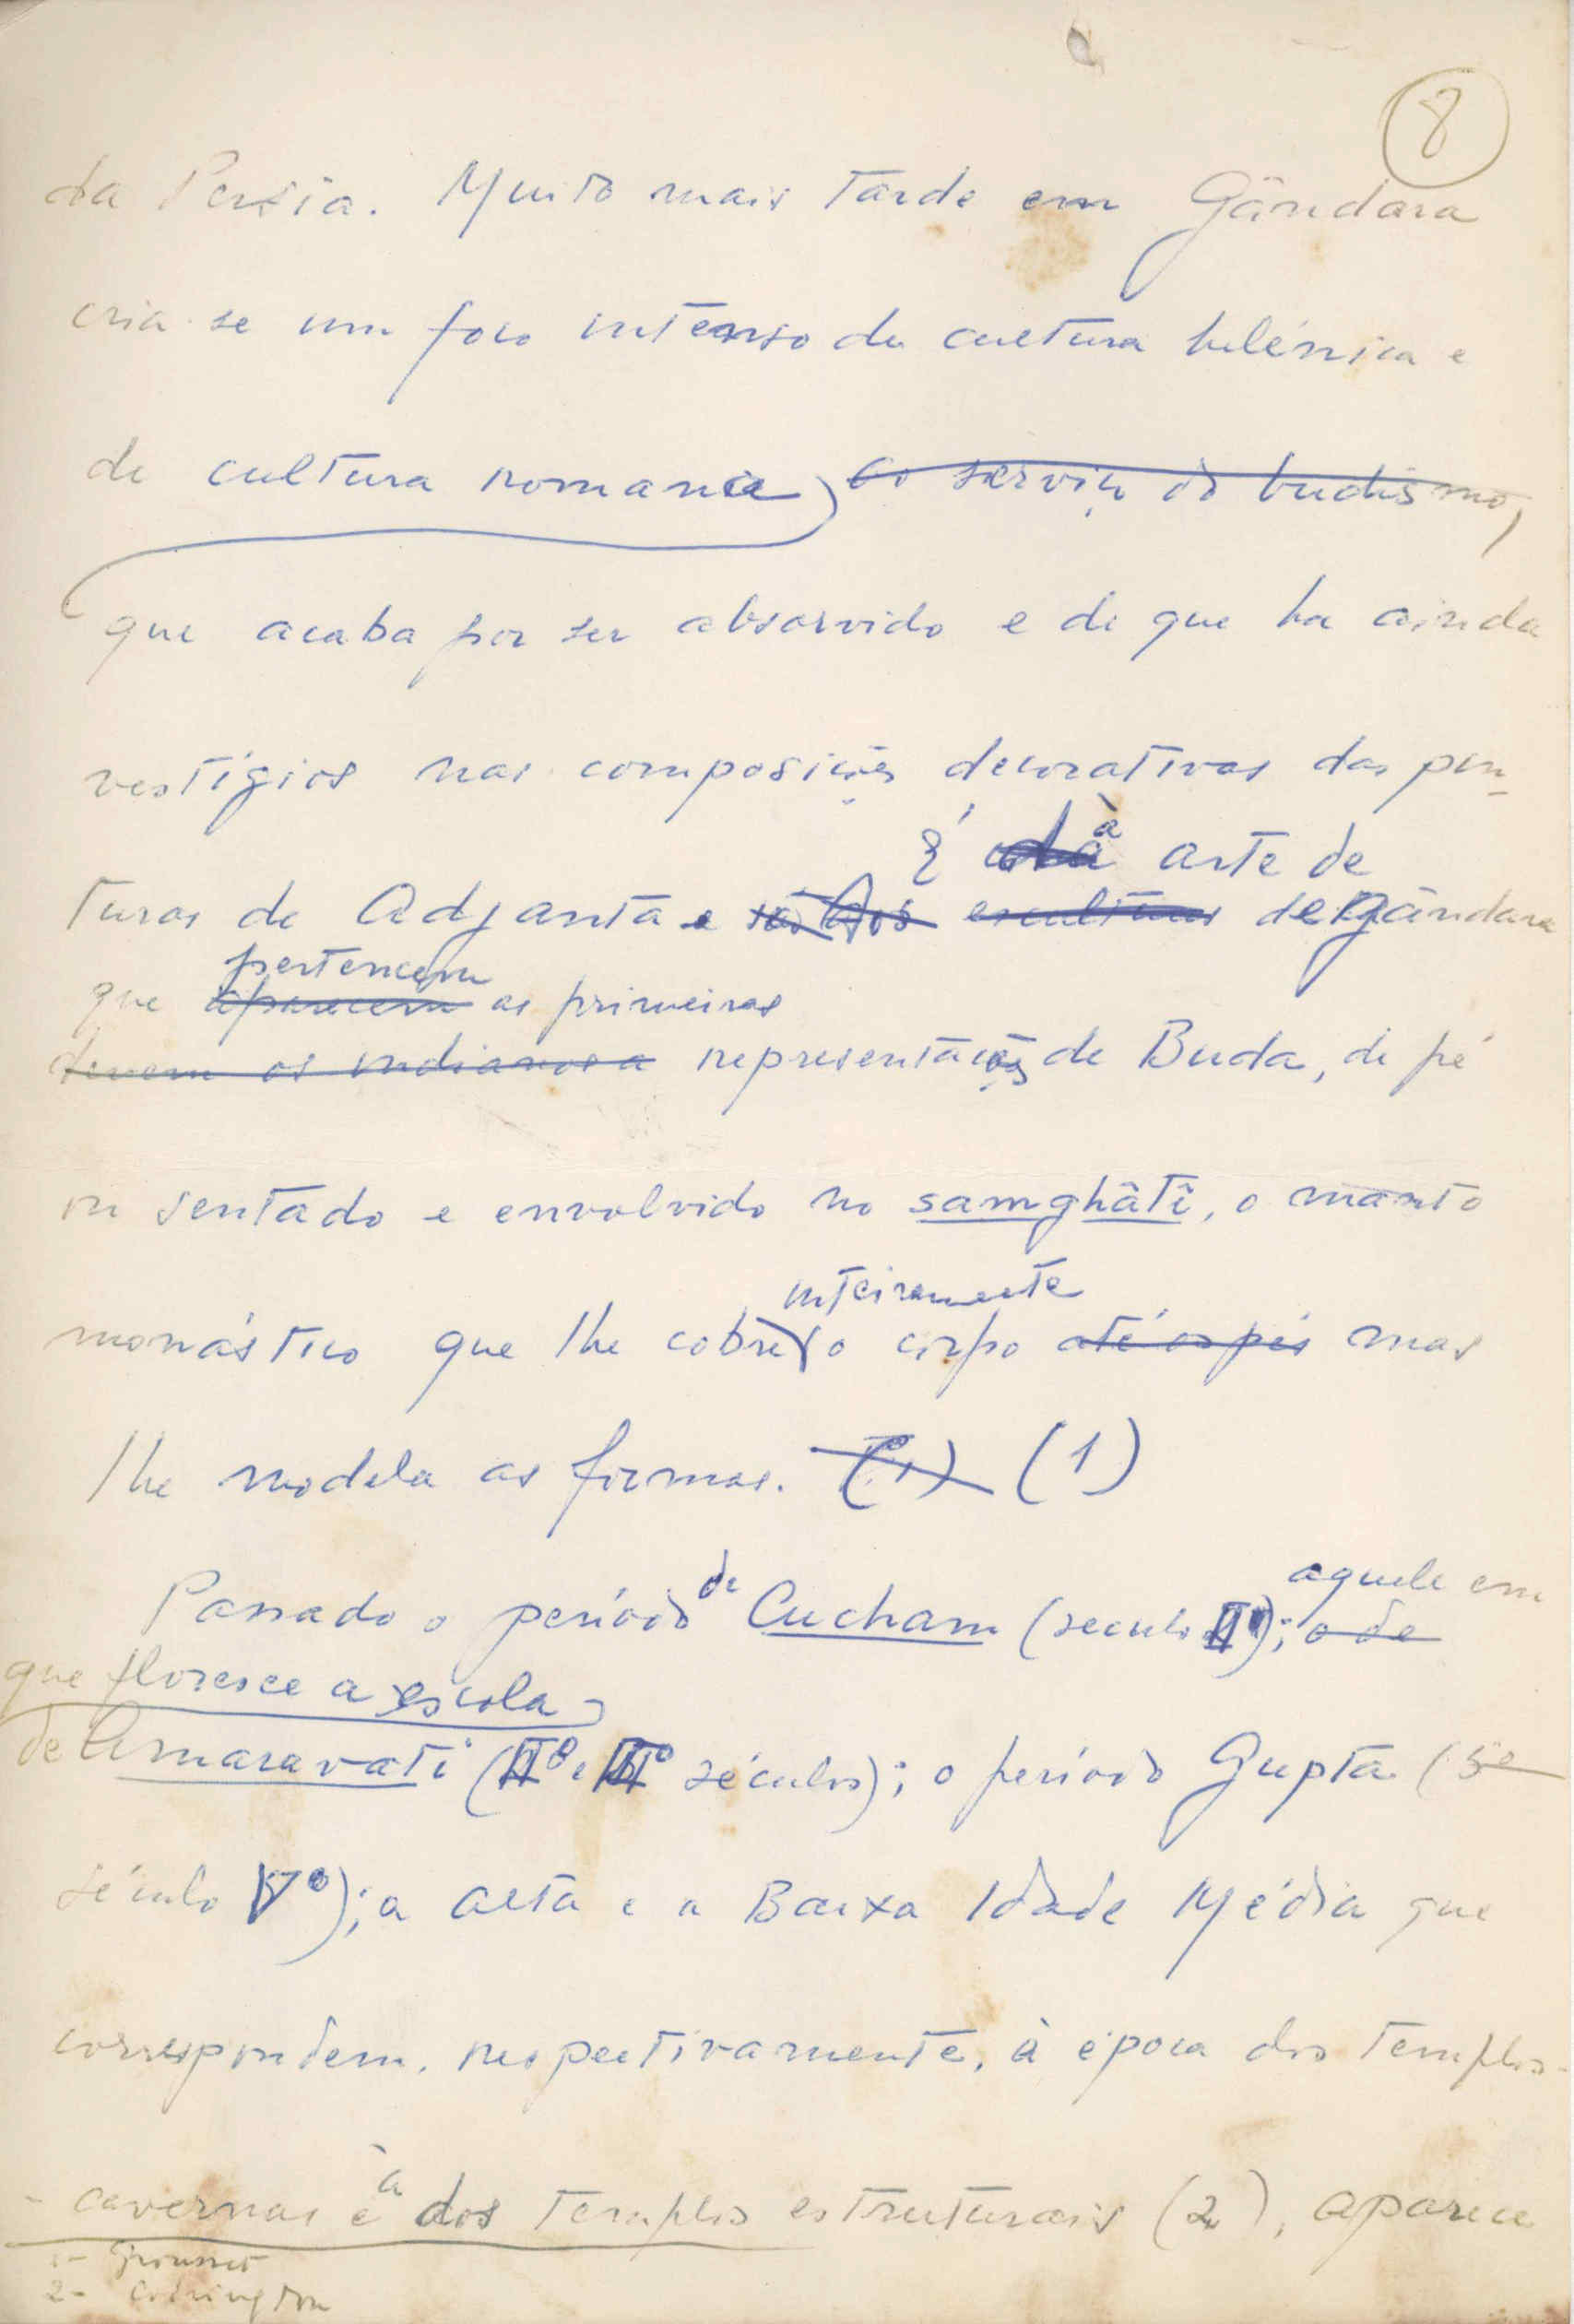 8
da Persia. Muito mais tarde em Gândara
cria-se um foco intenso de cultura helénica e
de cultura romana, ao serviço do budismo,
que acaba por ser absorvido e de que ha ainda
vestígios nas composições decorativas das pin-
É à arte de
turas de Adjanta e esculturas de Gândara
pertencem
que aparecem as primeiras
devem os indianos a representações de Buda, de pé
ou sentado e envolvido no samghâtî, o manto
inteiramente
monástico que lhe cobre o corpo até os pés mas
lhe modela as formas. (1) (1)
de aquele em
Passado o período Cucham (seculo II); o de
que floresce a escola
de Amaravati (IIº e IIIº séculos); o período Gupta (
século Vº); a alta e a Baixa Idade Média que
correspondem, respectivamente, à época dos templos-
à
-cavernas e dos templos estruturais (2), aparece
1- Grousset
2- Codrington